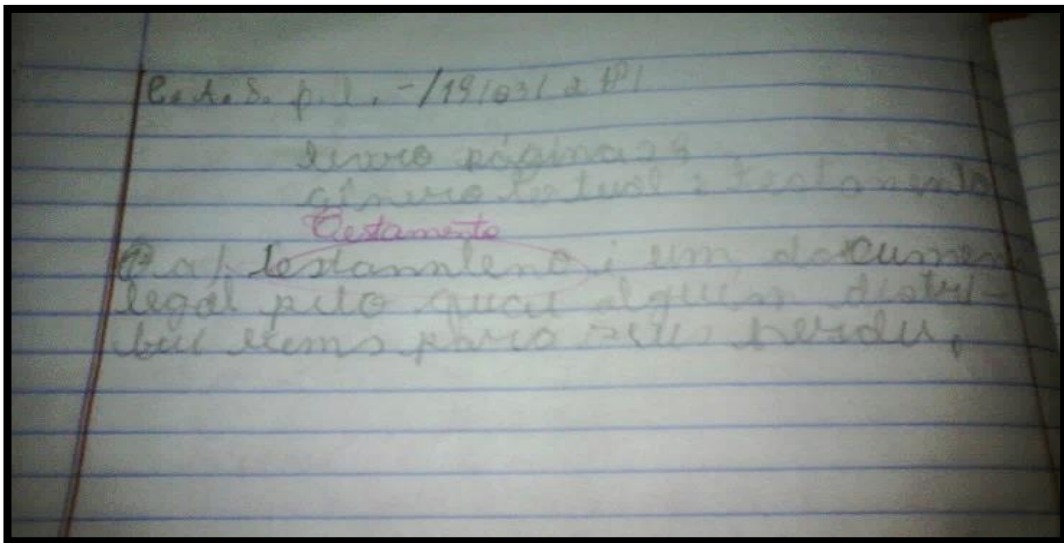 C.A.S. p.l. - /19/03/2
livro página 28
gênero textual : testamento
Testamento
R a) testannteno é um documen
legal pelo qual alguém distri-
bui bems para seus herdu.